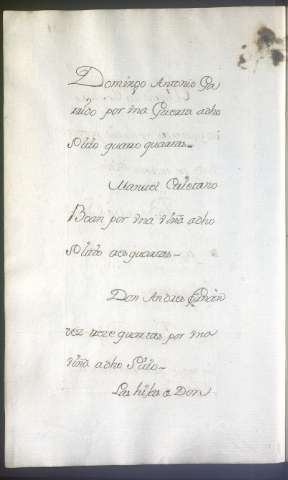 Domingo Antonio Ga
rrido por vna Guerta adho
sitio quatro quartas
Manuel Caietano
Boan por vna viña adho
sitio tres quartas
Don Andres
vez treze quartas por vna
viña adho sitio
Las hijas de Don